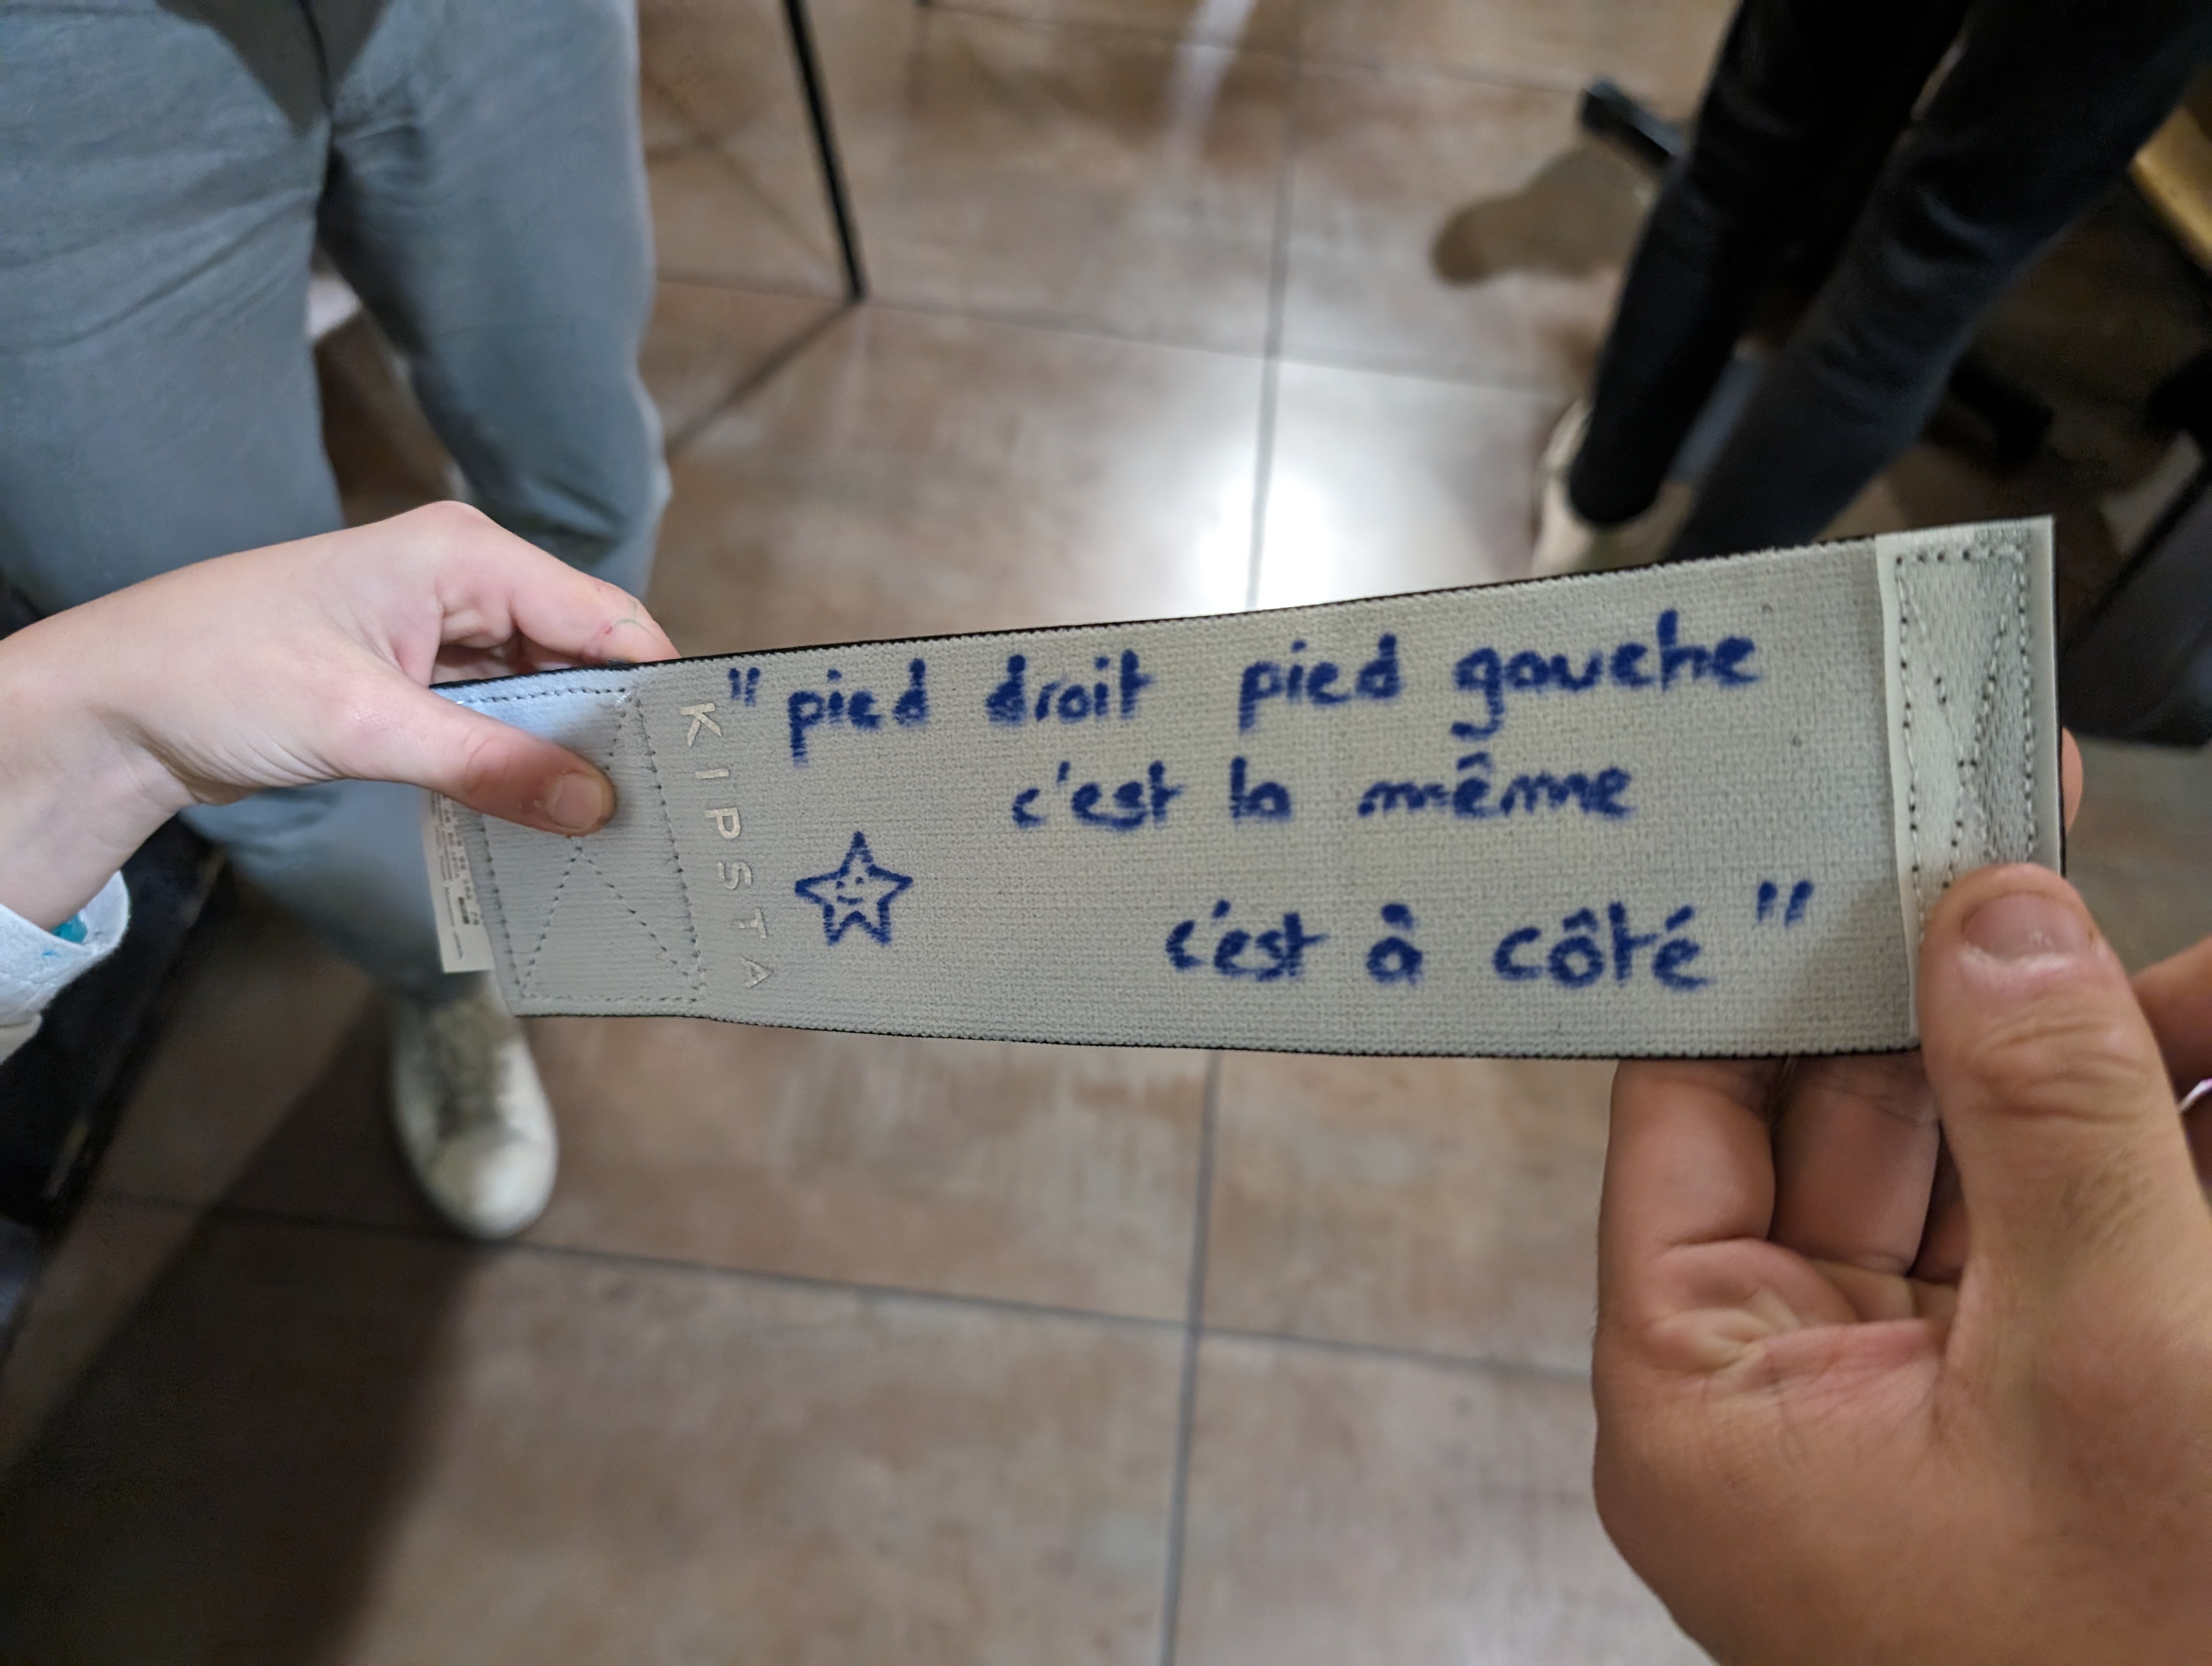 KIPSTA
" pied droit pied gauche
c'est la même
c'est à côté "